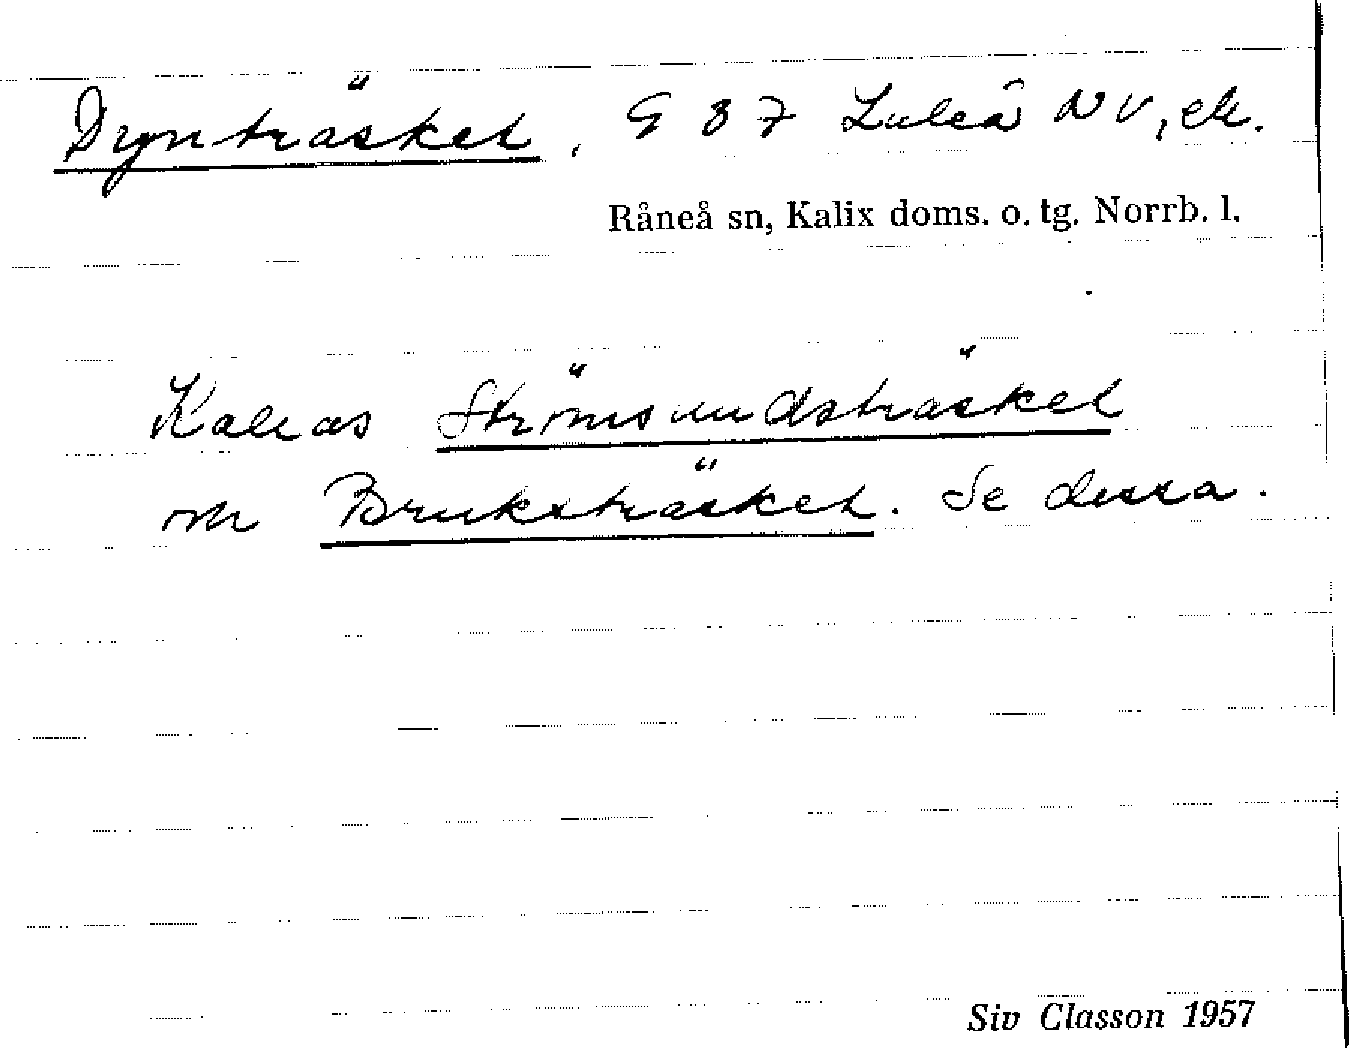 Dynträsket, G 87 Luleå NV, ek.
Råneå sn, Kalix doms. o. tg. Norrb. l.
Kallas Strömsundsträsket
och Bruksträsket. Se dessa.
Siv Classon 1957